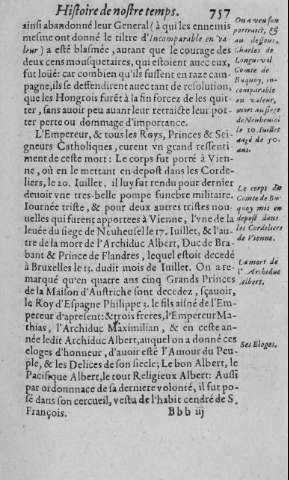 Histoire de nostre temps. 757
ainsi abandonné leur General (à qui les ennemis
mesme ont donné le tiltre d'Incomparable en va-
leur) a esté blasmée, autant que le courage des
deux cens mousquetaires, qui estoient auec eux,
fut loüé: car combien qu'ils fussent en raze cam-
pagne, ils se deffendirent auec tant de resolution,
que les Hongrois furēt à la fin forcez de les quit-
ter, sans auoir peu auant leur retraicte leur por-
ter perte ou dommage d'importance.
L'Empereur, & tous les Roys, Princes & Sei-
gneurs Catholiques, eurent vn grand ressenti-
ment de ceste mort: Le corps fut porté à Vien-
ne, où en le mettant en depost dans les Corde-
liers, le 20. Iuillet, il luy fut rendu pour dernier
deuoir vne tres-belle pompe funebre militaire.
Iournée triste, & pour deux autres tristes nou-
uelles qui furent apportees à Vienne, l'vne de la
leuée du siege de Neuheusel le 17. Iuillet, & l'au-
tre de la mort de l'Archiduc Albert, Duc de Bra-
bant & Prince de Flandres, lequel estoit decedé
à Bruxelles le 13. dudit mois de Iuillet. On a re-
marqué qu'en quatre ans cinq Grands Princes
de la Maison d'Austriche sont decedez, sçauoir,
le Roy d'Espagne Philippe 3. le fils aisné de l'Em-
pereur d'apresent: & trois freres, l'Empereur Ma-
thias, l'Archiduc Maximilian, & en ceste an-
née ledit Archiduc Albert, auquel on a donné ces
eloges d'honneur, d'auoir esté l'Amour du Peu-
ple, & les Delices de son siecle; Le bon Albert, le
Pacifique Albert, le tout Religieux Albert: Aussi
par ordonnnace de sa derniere volonté, il fut po-
sé dans son cercueil, vestu de l'habit cendré de S.
François. Bbb iij
On a veu son
pourtraict,
au dessous,
Charles de
Longueval
Comte de
Buquoy,
comparable
en valeur,
mort au siege
de Neuheusel
le 10 Iuillet
aagé de 50.
ans.
Le corps du
Comte de Bu-
quoy mis en
depost dans
les Cordeliers
de Vienne.
La mort de
l'Archiduc
Albert.
Ses Eloges.